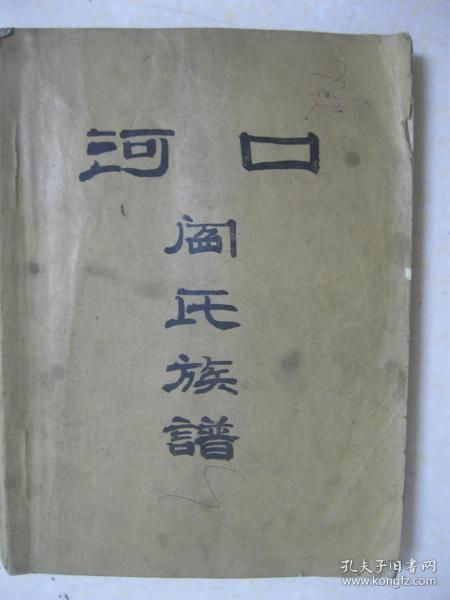 河口
阎氏族譜
孔夫子旧书网
www.kongfz.com